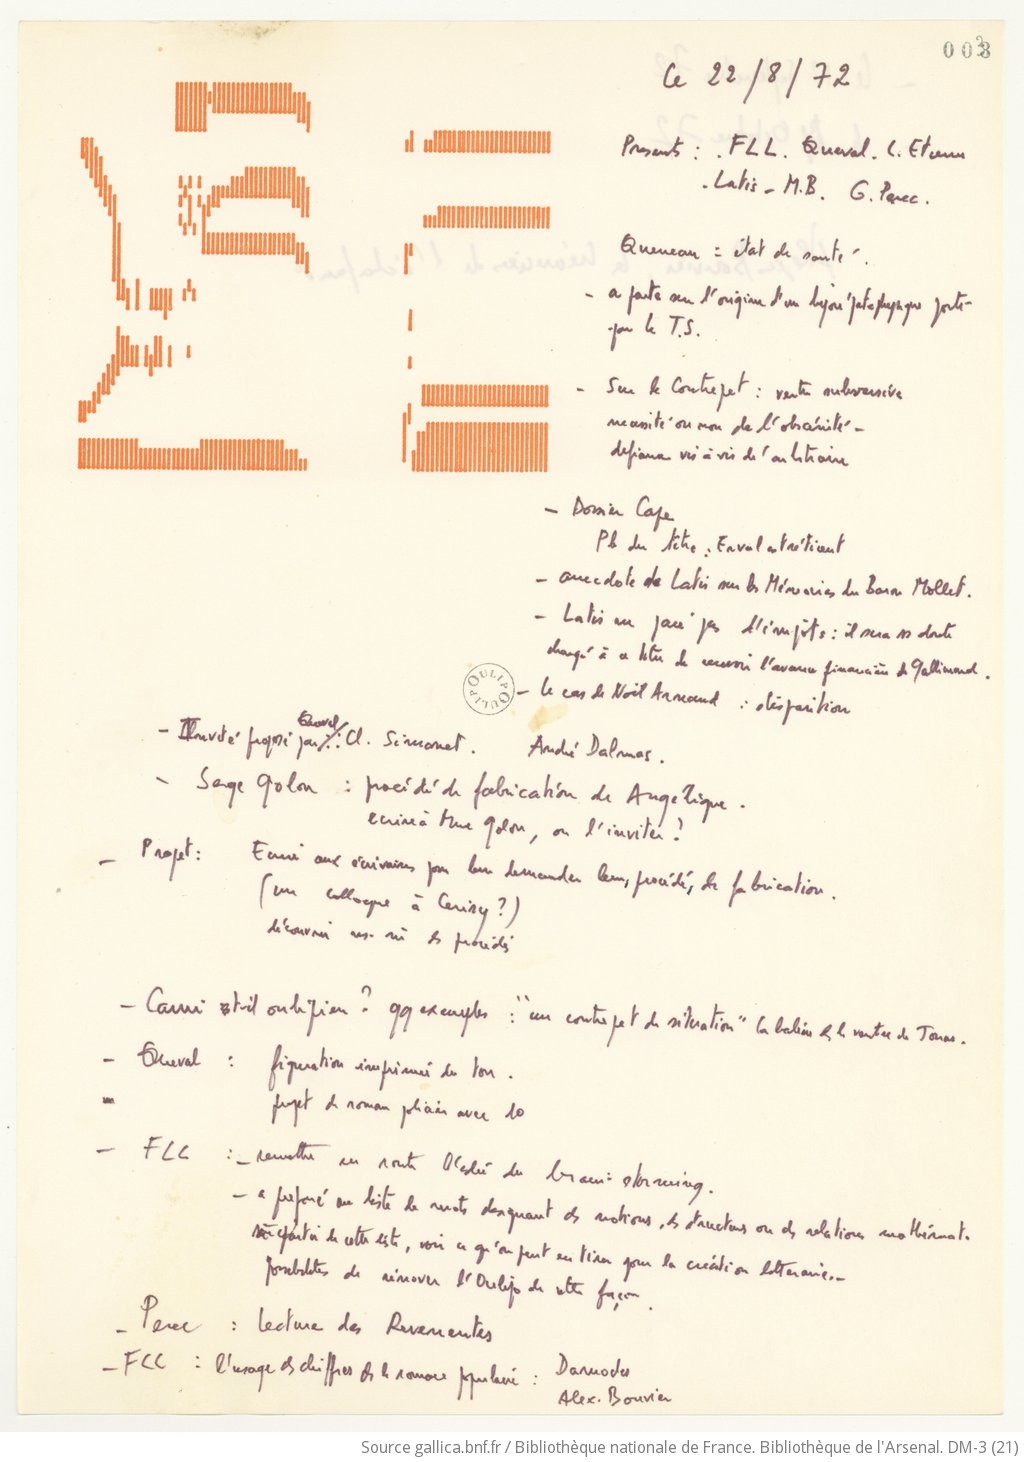 003
Le 22/8/72
Presents : . FLL . Queval . L. Etienne
. Latis - M.B. G. Perec.
Queneau = état de santé.
- a parlé sur l'origine d'un bijou 'pataphysique porté
par le T.S.
- Sur le Contrepet : vertu subversive
nécessité ou non de l'obscénité -
défiance vis à vis de l'arbitraire
- Dossier Cape
Pb du titre : Enval est réticent
- anecdote de Latis sur les Mémoires du Baron Mollet.
- Latis ne paie pas d'impôts : il sera ss doute
chargé à ce titre de recevoir l'avance financière de Gallimard.
OULIPO OULIPO
- le cas de Noël Arnaud : disparition
- Invité proposé par Queval : Cl. Simonet. André Dalmas.
- Serge Golon : procédé de fabrication de Angélique.
écrire à Mme Golon, ou l'inviter ?
- Projet : Ecrire aux écrivains pour leur demander leurs procédés de fabrication.
(un colloque à Cerisy ?)
découvrir les procédés
- Cami est-il oulipien ? qq exemples : "un contrepet de situation" la baleine ds le ventre de Jonas.
- Queval : figuration imprimée du ton.
projet de roman policier avec 10
- FLL : - remettre en route l'idée du brain-storming.
- a préparé une liste de mots désignant des notions, des structures ou des relations mathémat.
à partir de cette liste, voir ce qu'on peut en tirer pour la création littéraire. -
possibilités de rénover l'Oulipo de cette façon.
- Perec : Lecture des Revenentes
- FLL : l'usage des chiffres ds le roman populaire : Darnodes
Alex. Bouvier
Source gallica.bnf.fr / Bibliothèque nationale de France. Bibliothèque de l'Arsenal. DM-3 (21)